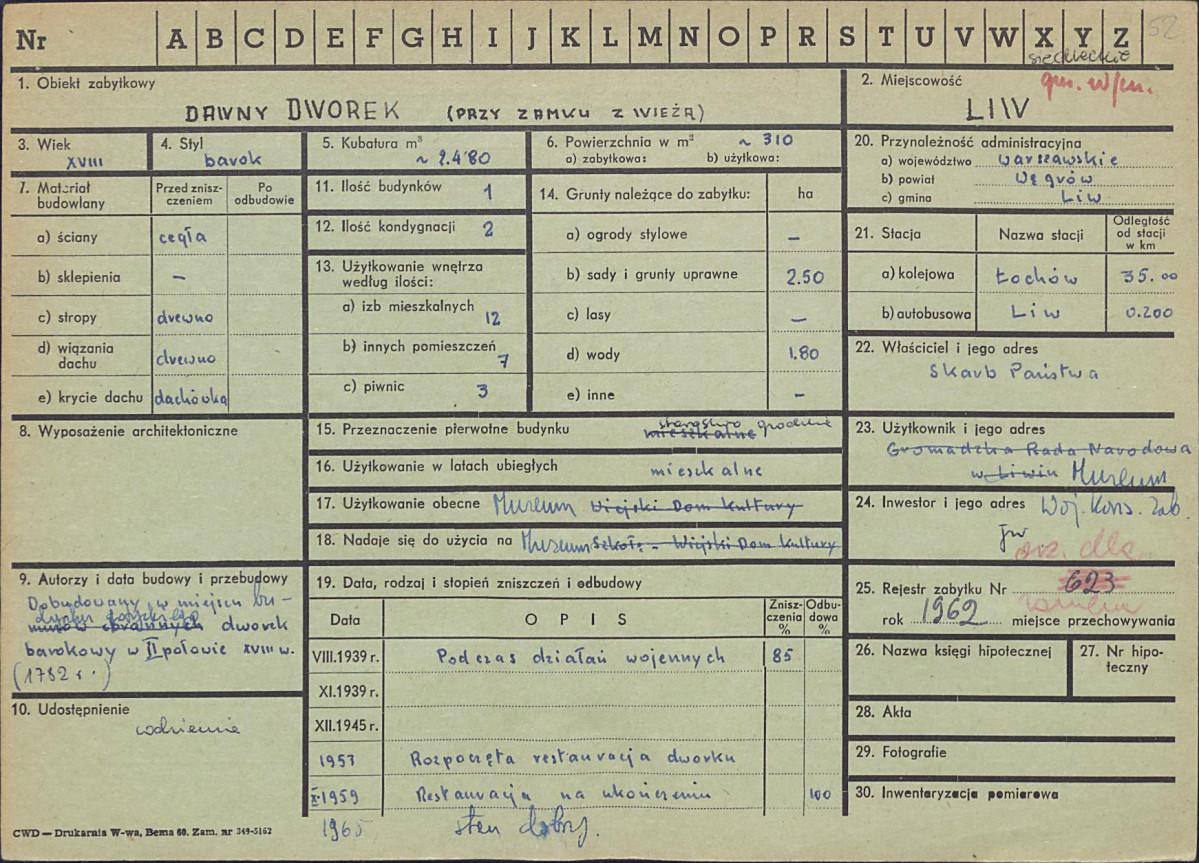 Nr A B C D E F G H I J K L M N O P R S T U V W X Y Z 52
siedleckie
1. Obiekt zabytkowy
DAWNY DWOREK (PRZY ZAMKU Z WIEŻĄ)
2. Miejscowość gm. w/m.
LIW
3. Wiek
XVIII
4. Styl
barok
5. Kubatura m³
~ 2.480
6. Powierzchnia w m² ~ 310
a) zabytkowa: b) użytkowa:
20. Przynależność administracyjna
a) województwo warszawskie
b) powiat Węgrów
c) gmina Liw
7. Materiał budowlany
Przed zniszczeniem
Po odbudowie
a) ściany cegła
b) sklepienia –
c) stropy drewno
d) wiązania dachu drewno
e) krycie dachu dachówka
11. Ilość budynków 1
12. Ilość kondygnacji 2
13. Użytkowanie wnętrza
według ilości:
a) izb mieszkalnych 12
b) innych pomieszczeń 7
c) piwnic 3
14. Grunty należące do zabytku: ha
a) ogrody stylowe –
b) sady i grunty uprawne 2.50
c) lasy –
d) wody 1.80
e) inne –
21. Stacja Nazwa stacji Odległość od stacji w km
a) kolejowa Łochów 35.00
b) autobusowa Liw 0.200
22. Właściciel i jego adres
Skarb Państwa
8. Wyposażenie architektoniczne
15. Przeznaczenie pierwotne budynku mieszkalne starostwo grodzkie
16. Użytkowanie w latach ubiegłych mieszkalne
17. Użytkowanie obecne Muzeum Wiejski Dom Kultury
18. Nadaje się do użycia na Muzeum Szkołę – Wiejski Dom Kultury
23. Użytkownik i jego adres
Gromadzka Rada Narodowa
w Liwiu Muzeum
24. Inwestor i jego adres Woj. Kons. Zab.
jw
orz. dla
zamku
9. Autorzy i data budowy i przebudowy
Dobudowany w miejscu bu-
dynku gotyckiego
murów obronnych dworek
barokowy w II połowie XVIII w.
(1782 r.)
10. Udostępnienie
codziennie
19. Data, rodzaj i stopień zniszczeń i odbudowy
Data OPIS Zniszczenia % Odbudowa %
VIII.1939 r. Podczas działań wojennych 85
XI.1939 r.
XII.1945 r.
1957 Rozpoczęta restauracja dworku
X.1959 Restauracja na ukończeniu 100
1965 stan dobry.
25. Rejestr zabytku Nr 623
rok 1962 miejsce przechowywania
26. Nazwa księgi hipotecznej
27. Nr hipoteczny
28. Akta
29. Fotografie
30. Inwentaryzacja pomiarowa
CWD — Drukarnia W-wa, Bema 60. Zam. nr 349-5162